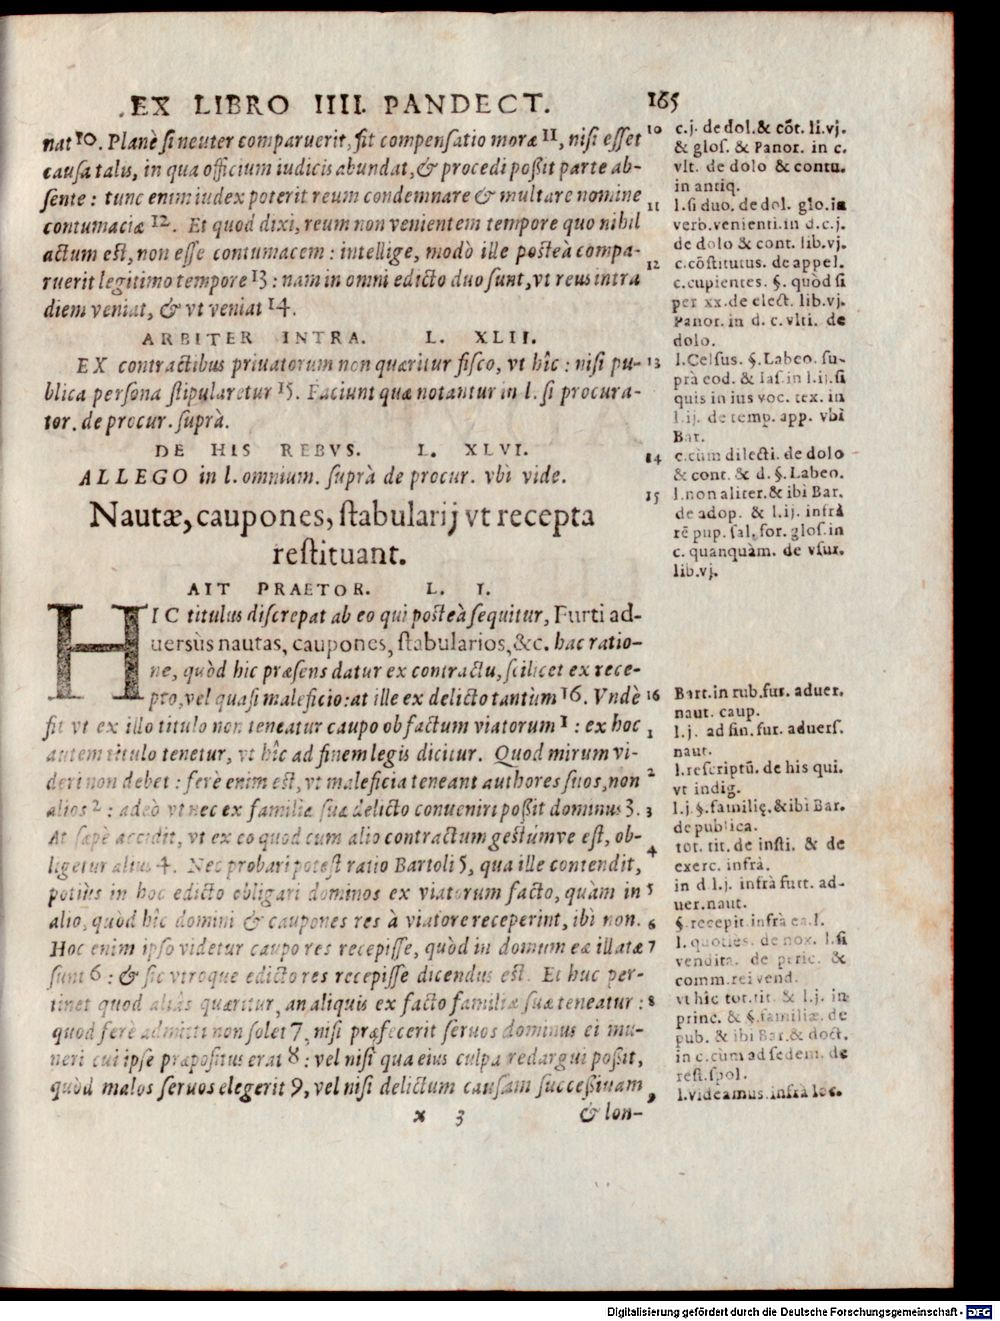 EX LIBRO IIII. PANDECT. 165
nat 10. Planè si neuter comparuerit, fit compensatio moræ 11, nisi esset
causa talis, in qua officium iudicis abundat, & procedi poßit parte ab-
sente: tunc enim iudex poterit reum condemnare & multare nomine
contumaciæ 12. Et quod dixi, reum non venientem tempore quo nihil
actum est, non esse contumacem: intellige, modò ille posteà compa-
ruerit legitimo tempore 13: nam in omni edicto duo sunt, vt reus intra
diem veniat, & vt veniat 14.
ARBITER INTRA. L. XLII.
EX contractibus priuatorum non quæritur fisco, vt hîc: nisi pu-
blica persona stipularetur 15. Faciunt quæ notantur in l. si procura-
tor. de procur. suprà.
DE HIS REBVS. L. XLVI.
ALLEGO in l. omnium. suprà de procur. vbi vide.
Nautæ, caupones, stabularij vt recepta
restituant.
AIT PRAETOR. L. I.
HIC titulus discrepat ab eo qui posteà sequitur, Furti ad-
uersùs nautas, caupones, stabularios, &c. hac ratio-
ne, quòd hic præsens datur ex contractu, scilicet ex rece-
pto, vel quasi maleficio: at ille ex delicto tantùm 16. Vndè
fit vt ex illo titulo non teneatur caupo ob factum viatorum 1: ex hoc
autem titulo tenetur, vt hîc ad finem legis dicitur. Quod mirum vi-
deri non debet: ferè enim est, vt maleficia teneant authores suos, non
alios 2: adeò vt nec ex familiæ suæ delicto conueniri poßit dominus 3.
At sæpè accidit, vt ex eo quod cum alio contractum gestúmve est, ob-
ligetur alius 4. Nec probari potest ratio Bartoli 5, qua ille contendit,
potiùs in hoc edicto obligari dominos ex viatorum facto, quàm in
alio, quòd hîc domini & caupones res à viatore receperint, ibi non.
Hoc enim ipso videtur caupo res recepisse, quòd in domum eæ illatæ
sunt 6: & sic vtroque edicto res recepisse dicendus est. Et huc per-
tinet quod aliàs quæritur, an aliquis ex facto familiæ suæ teneatur:
quod ferè admitti non solet 7, nisi præfecerit seruos dominus ei mu-
neri cui ipse præpositus erat 8: vel nisi qua eius culpa redargui poßit,
quòd malos seruos elegerit 9, vel nisi delictum causam succeßiuam
x 3 & lon-
10 c.j. de dol. & cōt. li. vj.
& glos. & Panor. in c.
vlt. de dolo & contu.
in antiq.
11 l. si duo. de dol. glo. in
verb. venienti. in d. c. j.
de dolo & cont. lib. vj.
12 c. cōstitutus. de appel.
c. cupientes. §. quòd si
per xx. de elect. lib. vj.
Panor. in d. c. vlti. de
dolo.
13 l. Celsus. §. Labeo. su-
prà eod. & Ias. in l. ij. si
quis in ius voc. tex. in
l. ij. de temp. app. vbi
Bar.
14 c. cùm dilecti. de dolo
& cont. & d. §. Labeo.
15 l. non aliter. & ibi Bar.
de adop. & l. ij. infrà
rē pup. sal. for. glos. in
c. quanquàm. de vsur.
lib. vj.
16 Bart. in rub. fur. aduer.
naut. caup.
1 l. j. ad fin. fur. aduers.
naut.
2 l. rescriptū. de his qui.
vt indig.
3 l. j. §. familię. & ibi Bar.
de publica.
4 tot. tit. de insti. & de
exerc. infrà.
5 in d. l. j. infrà furt. ad-
uer. naut.
6 §. recepit. infrà ea. l.
7 l. quoties. de nox. l. si
vendita. de peric. &
comm. rei vend.
8 vt hîc tot. tit. & l. j. in
princ. & §. familiæ. de
pub. & ibi Bar. & doct.
in c. cùm ad sedem. de
rest. spol.
9 l. videamus. infrà loc.
Digitalisierung gefördert durch die Deutsche Forschungsgemeinschaft - DFG